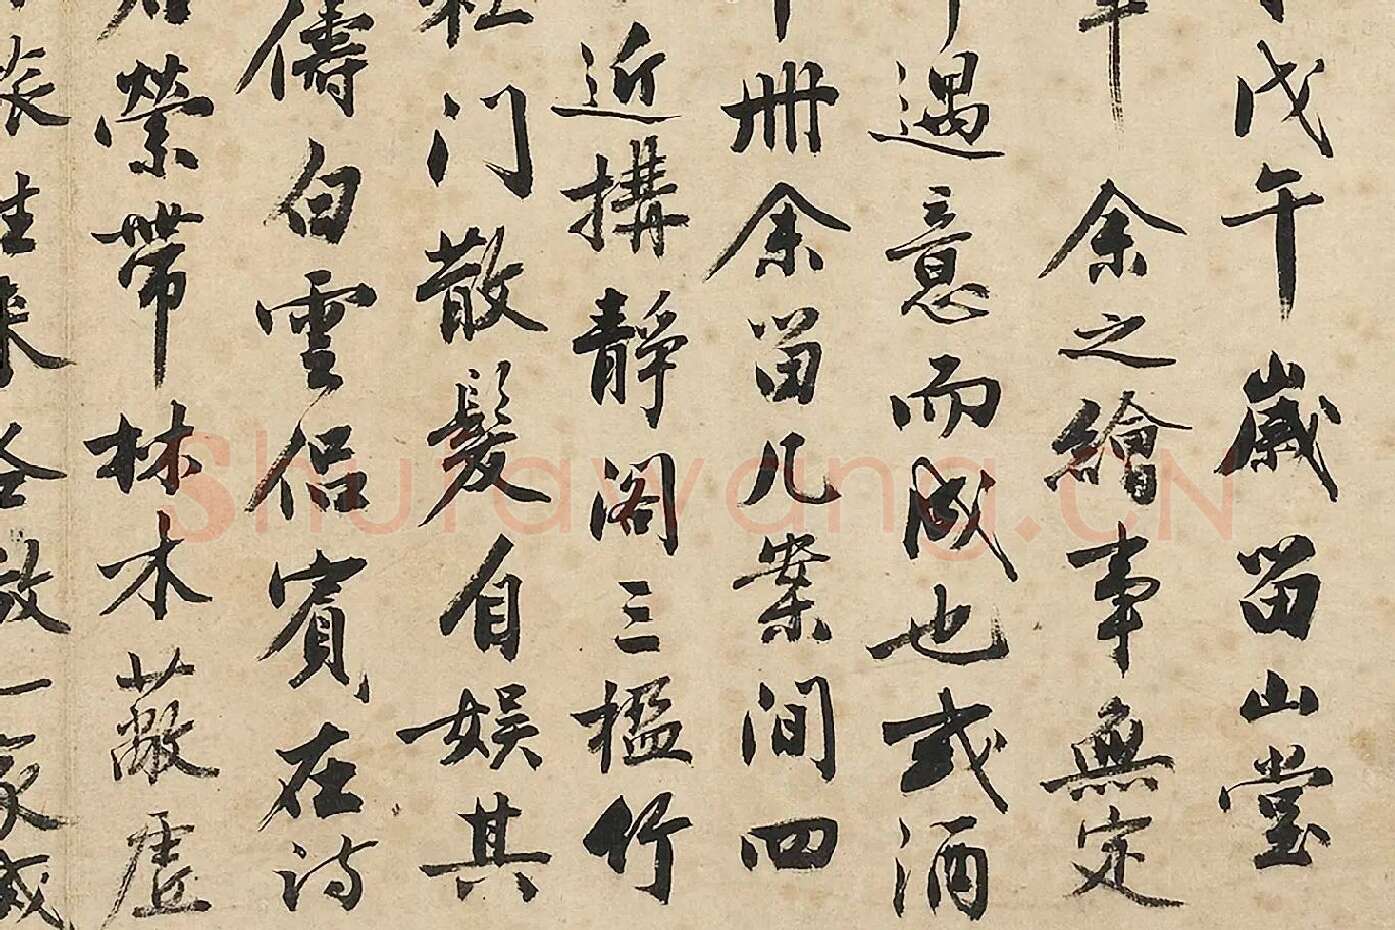 戊午歲留山堂
年余之繪事無定
遇意而成也或酒
冊余留几案間四
近搆靜閣三楹竹
杜门散髮自娛其
儔白雲侶賓在诗
縈帶林木蔽虛
Shufawang.CN